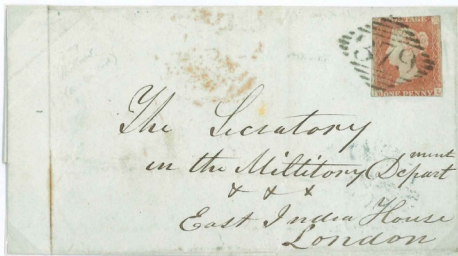 POSTAGE
379
ONE PENNY
The Secratory
in the Millitory Depart ment
& & &
East India House
London